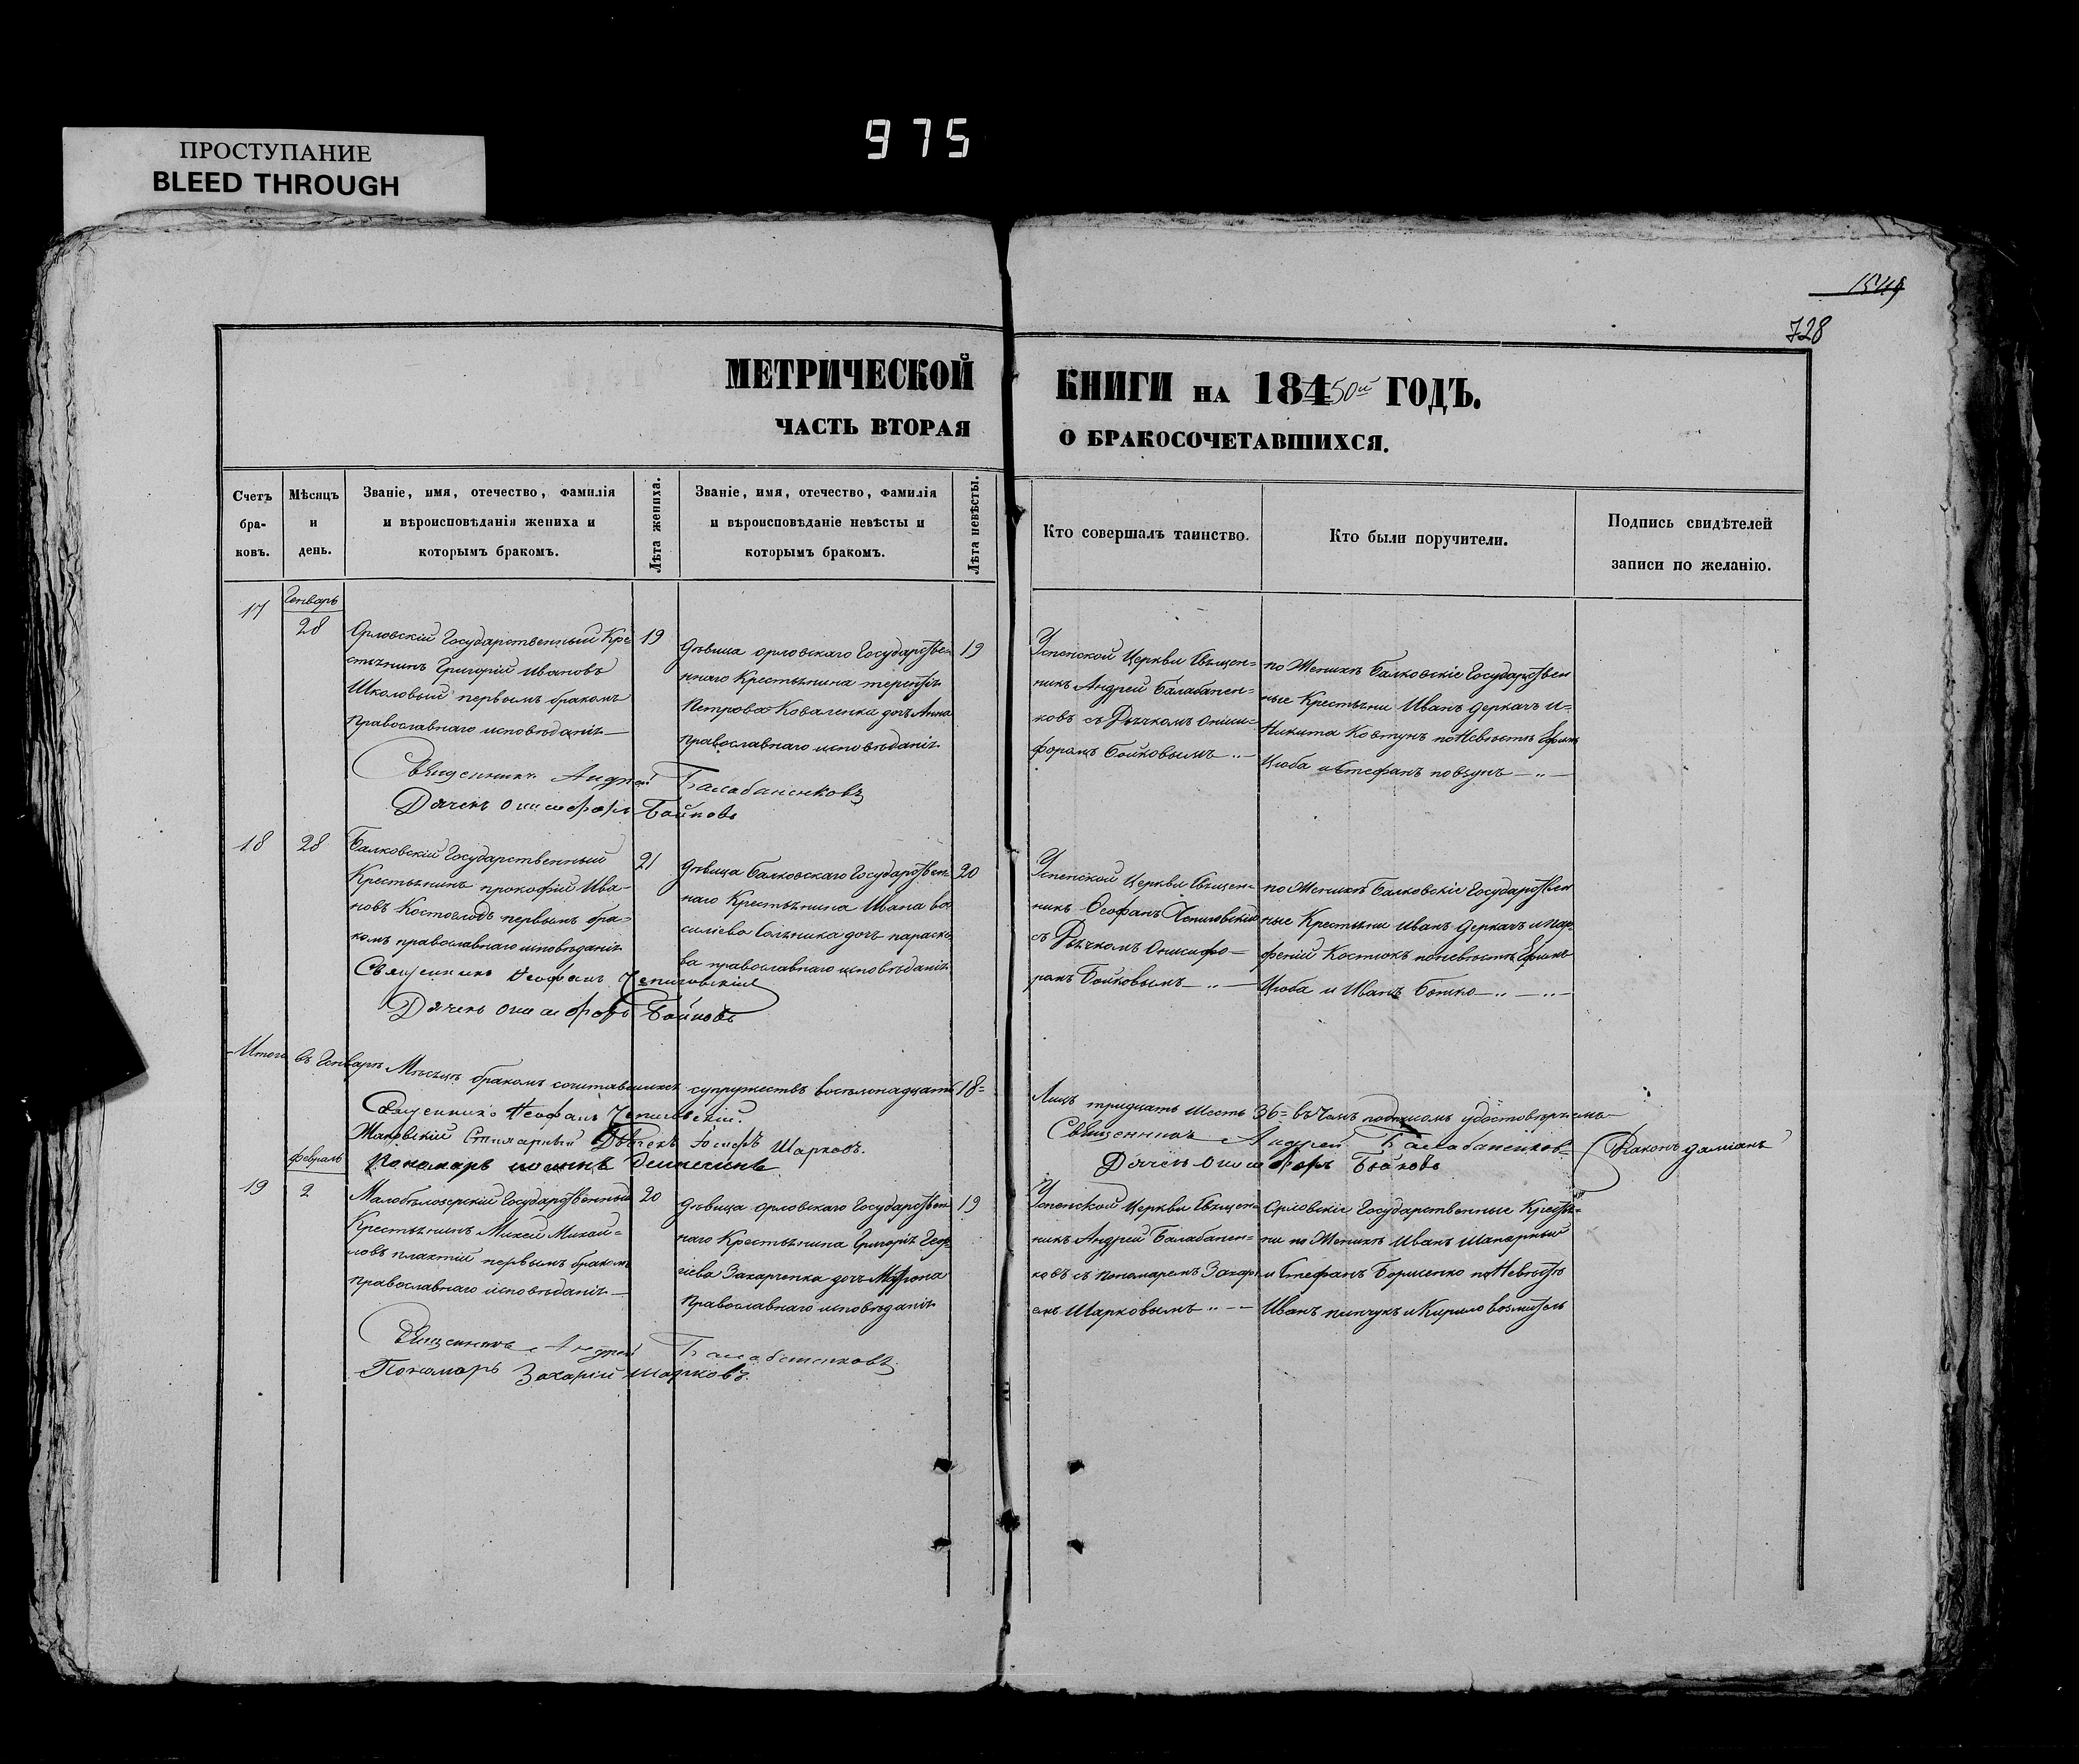 975
ПРОСТУПАНИЕ
BLEED THROUGH
1549
728
МЕТРИЧЕСКОЙ КНИГИ НА 184 50й ГОДЪ.
ЧАСТЬ ВТОРАЯ О БРАКОСОЧЕТАВШИХСЯ.
Счетъ бра-ковъ.
Мѣсяцъ и день.
Званіе, имя, отечество, фамилія
и вѣроисповѣданія жениха и
которымъ бракомъ.
Лѣта жениха.
Званіе, имя, отечество, фамилія
и вѣроисповѣданіе невѣсты и
которымъ бракомъ.
Лѣта невѣсты.
Кто совершалъ таинство.
Кто были поручители.
Подпись свидѣтелей
записи по желанію.
17
Генварь
28
Орловскій Государственный Кре
стьянинъ Григорій Ивановъ
Школовый первымъ бракомъ
православнаго исповѣданія
19
Дѣвица орловскаго Государствен
ннаго Крестьянина терентія
Петрова Коваленка дочь Анна
православнаго исповѣданія
19
Успенской Церкви Священ=
никъ Андрей Балабанен=
ковъ съ Дьячкомъ Ониси=
форомъ Бойковымъ
по Женихѣ Балковскіе Государствен
ные Крестьяни Иванъ Деркачъ и=
Никита Ковтунъ по Невѣстѣ
Цюба и Стефанъ
Священникъ Андрей Балабаненковъ
Дячекъ Онисифоръ Бойковъ
18
28
Балковскій Государственный
Крестьянинъ прокофій Ива-
новъ Костоглодъ первымъ бра=
комъ православнаго исповѣданія
21
Дѣвица Балковскаго Государствен
наго Крестьянина Ивана Ва
силіева дочь параске
ва православнаго исповѣданія
20
Успенской Церкви Священ=
никъ Ѳеофанъ Чепиговскій
съ Дьячкомъ Онисифо=
ромъ Бойковымъ
по Женихѣ Балковскіе Государствен
ные Крестьяни Иванъ Деркачъ и пар
феній Костюкъ по невѣстѣ
Цюба и Иванъ Божко
Священникъ Ѳеофанъ Чепиговскій
Дячекъ Онисифоръ Бойковъ
Итого въ Генварѣ Мѣсяцѣ бракомъ сочитавшихся супружествъ восемнадцать 18=
Лицъ тридцать шесть 36= въ чемъ подписомъ удостовѣряемъ
Священникъ Ѳеофанъ Чепиговскій.
Священникъ Андрей Балабаненковъ
Диаконъ даміанъ
Дьячекъ Іосифъ Шарковъ.
Дячекъ Онисифоръ Бойковъ
Пономарь
Февраль
19
2
Малобѣлозерскій Государственный
Крестьянинъ Михей Михай=
ловъ плахтій первымъ бракомъ
православнаго исповѣданія
20
Дѣвица орловскаго Государствен
наго Крестьянина Григорія Геор
гіева Захарченка дочь Матрона
православнаго исповѣданія
19
Успенской Церкви Священ=
никъ Андрей Балабанен=
ковъ съ пономаремъ Захарі
емъ Шарковымъ
Орловскіе Государственные Крестья=
ни по Женихѣ Иванъ Шапарный
и Стефанъ Борисенко по Невѣстѣ
Иванъ пинчукъ и Кирило
Священникъ Андрей Балабаненковъ
Пономарь Захарій Шарковъ.